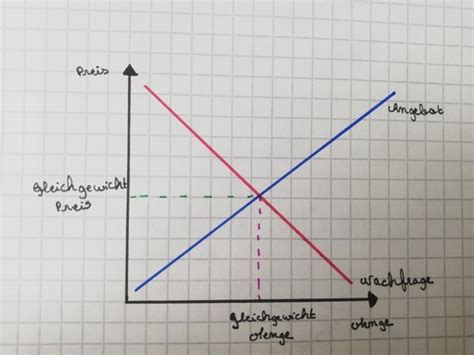 Preis
Angebot
Gleichgewicht
Preis
Nachfrage
Gleichgewicht
Menge
Menge